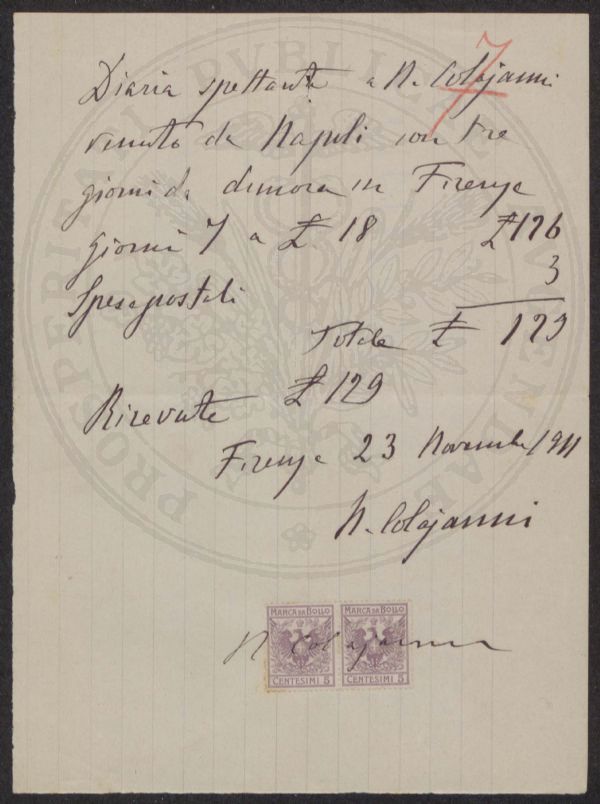 Diaria spettante a N. Colajanni
7
venuto da Napoli con tre
giorni di dimora in Firenze
giorni 7 a £ 18 £ 126
Spese postali 3
Totale £ 129
Ricevute £ 129
Firenze 23 Novembre 1911
N. Colajanni
MARCA DA BOLLO MARCA DA BOLLO
N Colajanni
CENTESIMI 5 CENTESIMI 5
PROSPERITATI PVBLICAE AVGENDAE